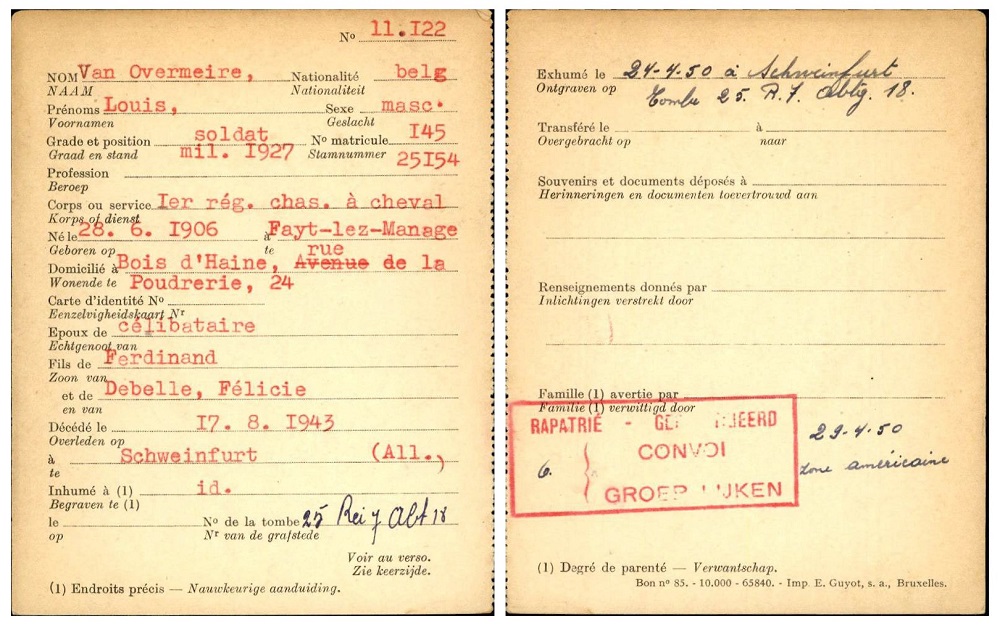 Nº 11.I22
NOM Van Overmeire, Nationalité belg
NAAM Nationaliteit
Prénoms Louis, Sexe masc.
Voornamen Geslacht
Grade et position soldat Nº matricule I45
Graad en stand mil. I927 Stamnummer 25I54
Profession
Beroep
Corps ou service Ier rég. chas. à cheval
Korps of dienst
Né le 28. 6. I906 à Fayt-lez-Manage
Geboren op te rue
Domicilié à Bois d'Haine, Avenue de la
Wonende te Poudrerie, 24
Carte d'identité Nº
Eenzelvigheidskaart Nr
Epoux de célibataire
Echtgenoot van
Fils de Ferdinand
Zoon van
et de Debelle, Félicie
en van
Décédé le I7. 8. I943
Overleden op
à Schweinfurt (All.,
te
Inhumé à (1) id.
Begraven te (1)
le Nº de la tombe 25 Rei 7 Abt 18
op Nr van de grafstede
Voir au verso.
Zie keerzijde.
(1) Endroits précis — Nauwkeurige aanduiding.
Exhumé le 24-4-50 à Schweinfurt
Ontgraven op Tombe 25. R.7. Abtg. 18.
Transféré le à
Overgebracht op naar
Souvenirs et documents déposés à
Herinneringen en documenten toevertrouwd aan
Renseignements donnés par
Inlichtingen verstrekt door
Famille (1) avertie par
Familie (1) verwittigd door
RAPATRIÉ - GE JEERD
CONVOI
6.
GROEP LIJKEN
29-4-50
zone américaine
(1) Degré de parenté — Verwantschap.
Bon nº 85. - 10.000 - 65840. - Imp. E. Guyot, s. a., Bruxelles.